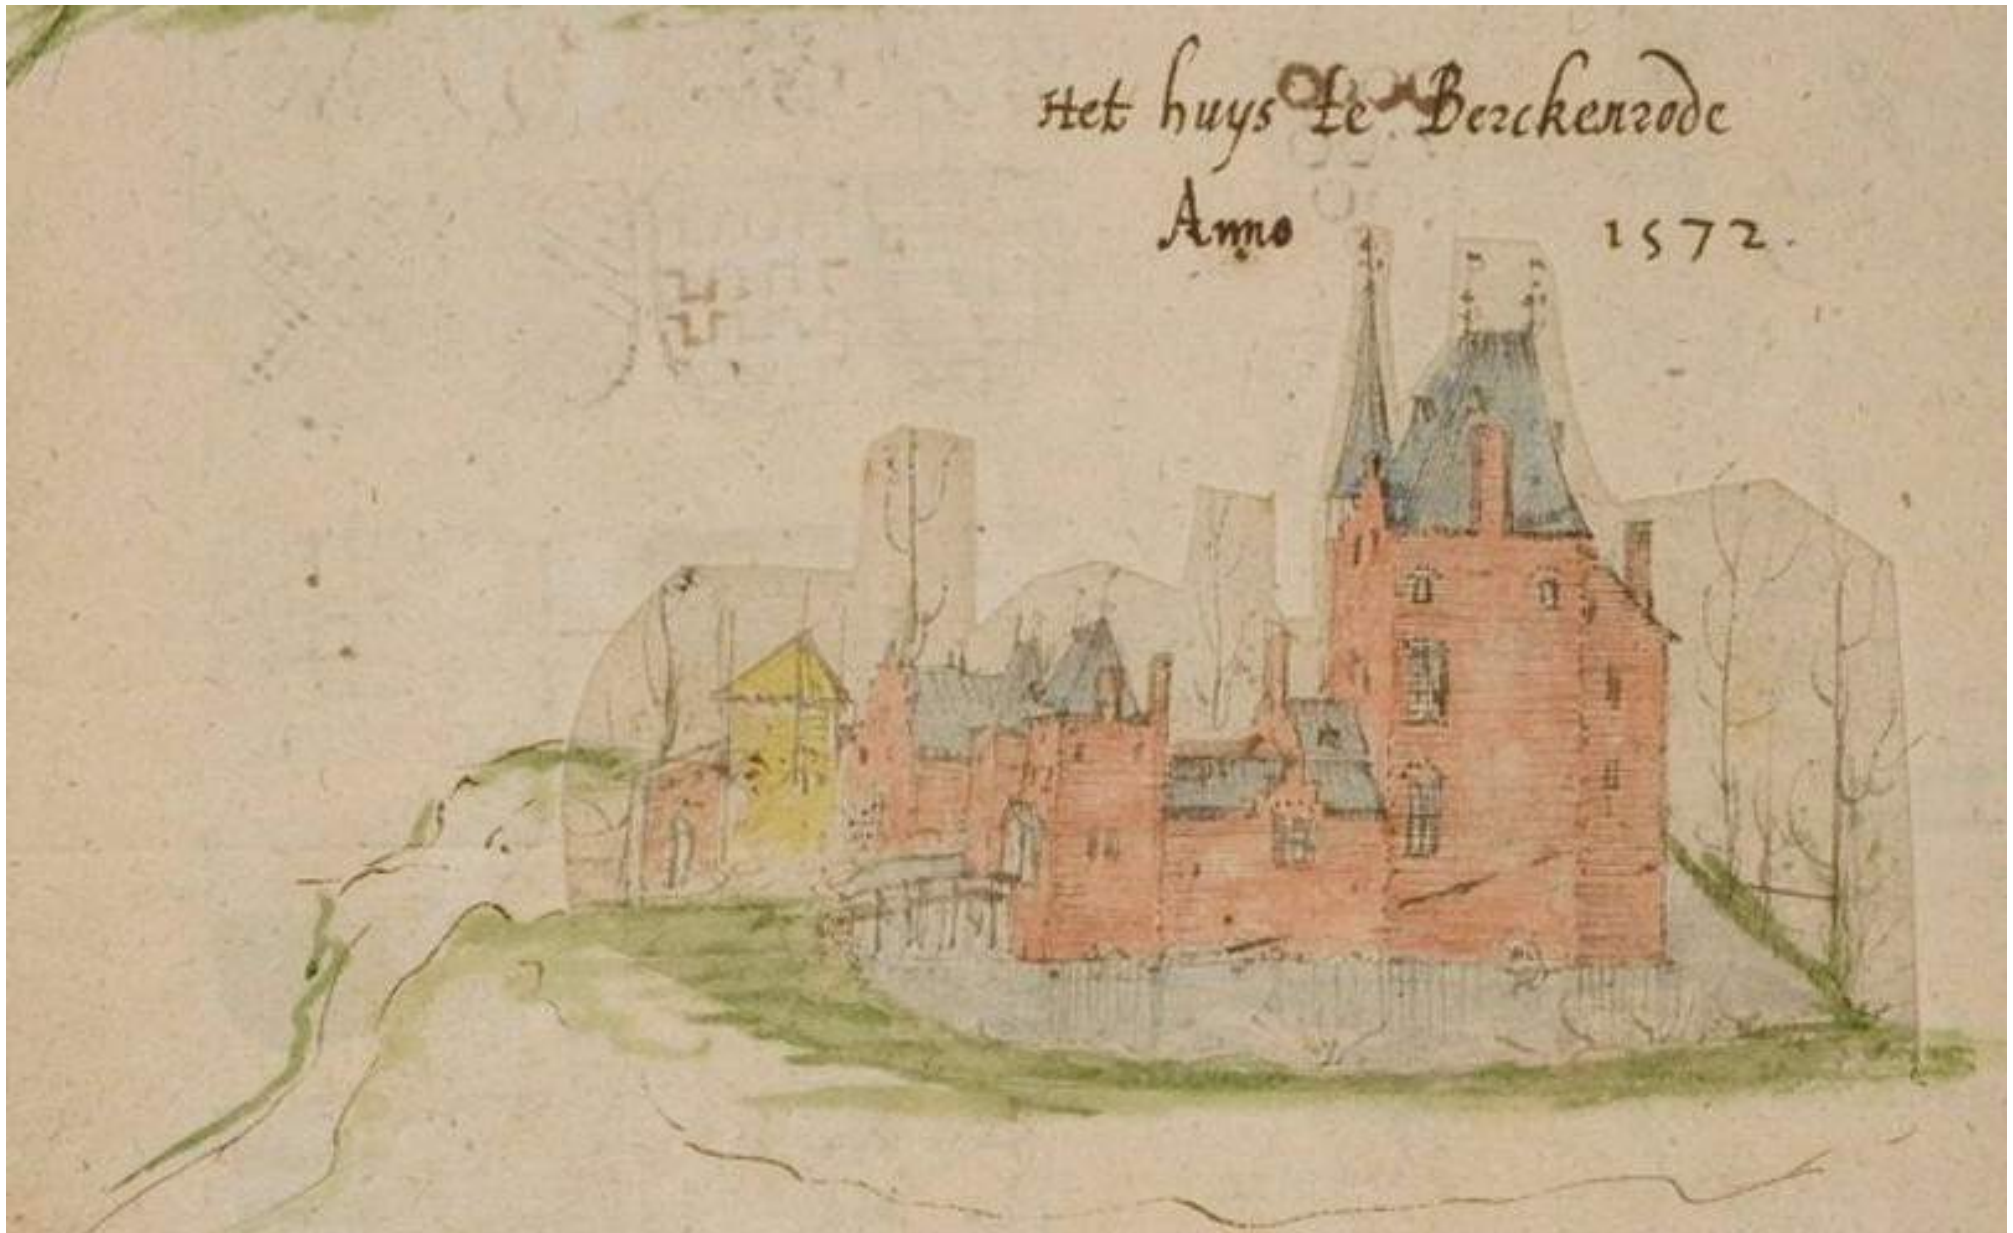 Het huys te Berckenrode
Anno 1572.